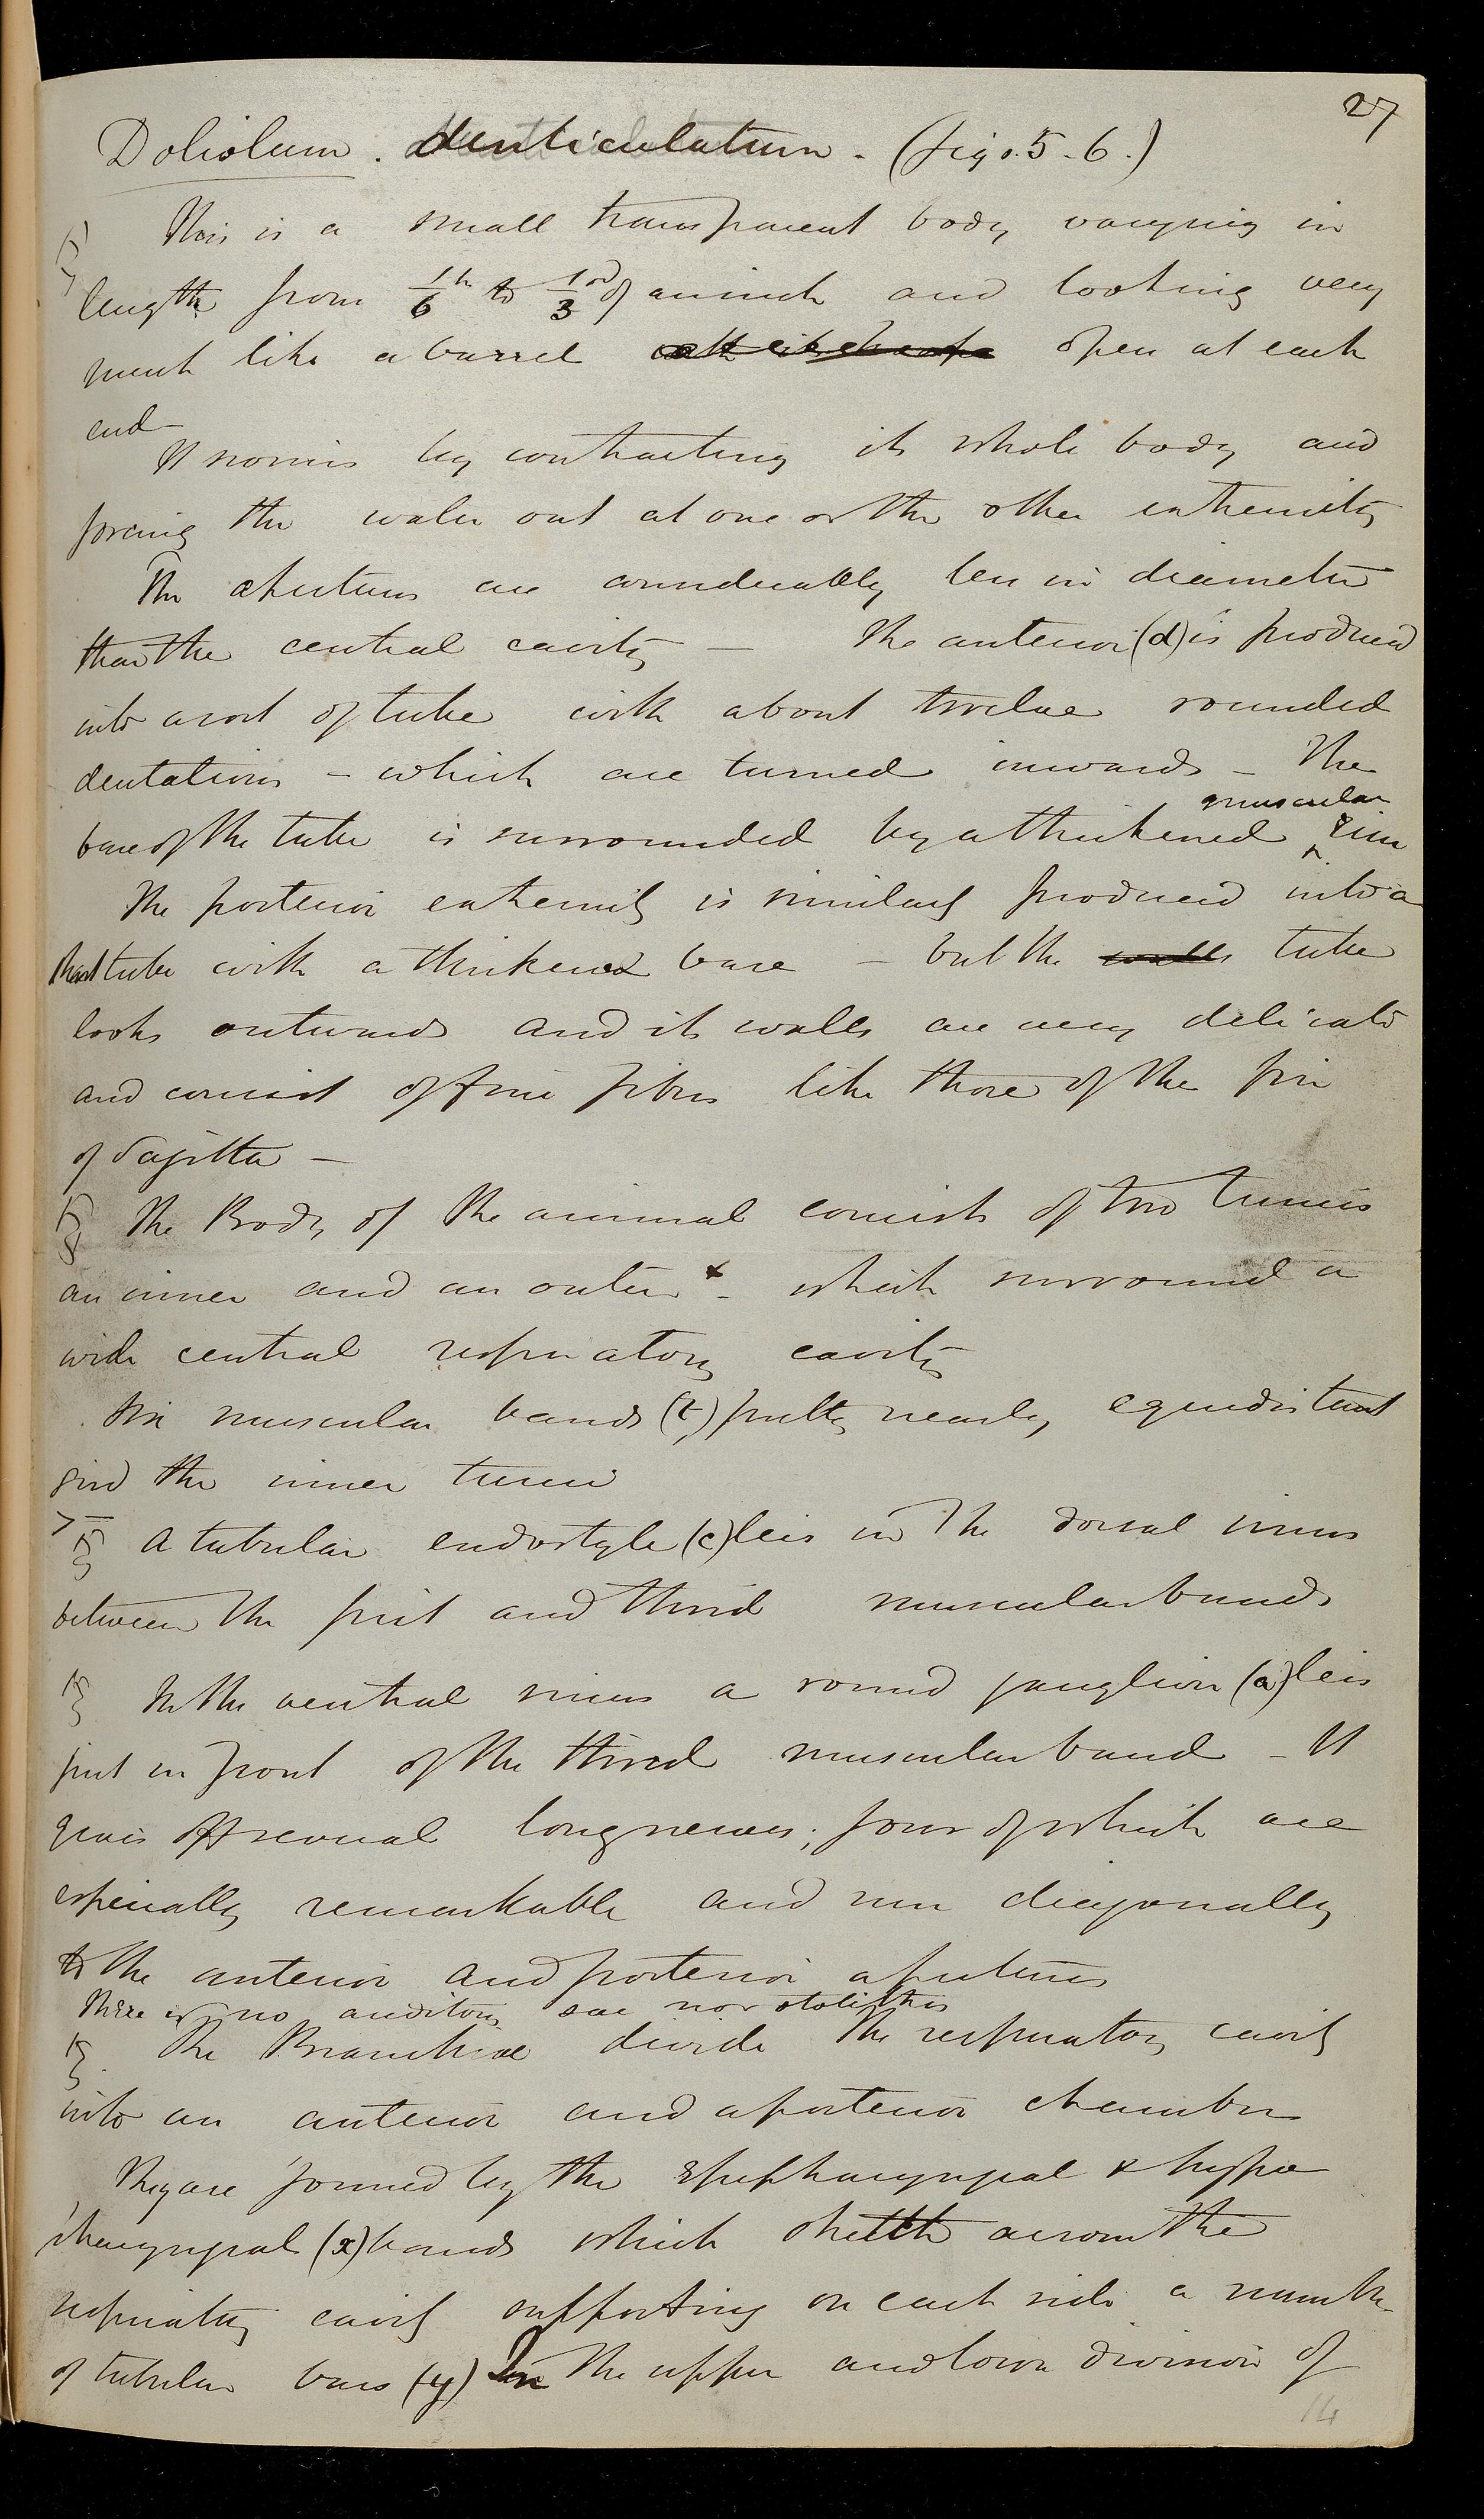 27
Doliolum. denticulatum. (figs. 5-6.)
This is a small transparent body varying in
length from 1/6th to 1/3rd of an inch and looking very
much like a barrel open at each
end -
It swims by contracting its whole body and
forcing the water out at one or the other extremity
The apertures are considerably less in diameter
than the central cavity - The anterior (d) is produced
into a sort of tube with about twelve rounded
dentations - which are turned inwards - The
muscular
base of the tube is surrounded by a thickened ^ rim
The posterior extremity is similarly produced into a
short tube with a thickened base - but the walls tube
looks outwards and its walls are very delicate
and consist of fine fibres like those of the fin
of Sagitta -
The Body of the animal consists of two tunics
an inner and an outer x - which surround a
wide central respiratory cavity
Six muscular bands (t) pretty nearly equidistant
gird the inner tunic
A tubular endostyle (c) lies in the dorsal sinus
between the first and third muscular bands
In the ventral sinus a round ganglion (a) lies
just in front of the third muscular band - It
gives off several long nerves; four of which are
especially remarkable and run diagonally
to the anterior and posterior apertures
There is no auditory sac nor otolithes
The Branchiae divide the respiratory cavity
into an anterior and a posterior chamber
They are formed by the Epipharyngeal & hypo
pharyngeal (x) bands which stretch across the
respiratory cavity supporting on each side a number
of tubular bars (y) In the upper and lower division of
14